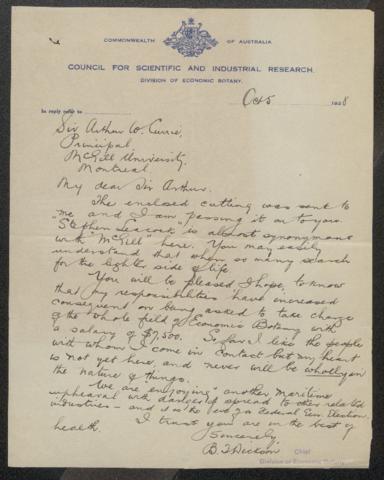 COMMONWEALTH OF AUSTRALIA
COUNCIL FOR SCIENTIFIC AND INDUSTRIAL RESEARCH.
DIVISION OF ECONOMIC BOTANY.
In reply refer to
Oct 5 1928
Sir Arthur W. Currie,
Principal,
McGill University,
Montreal.
My dear Sir Arthur.
The enclosed cutting was sent to
me and I am passing it on to you.
"Stephen Leacock" is almost synonymous
with "McGill" here. You may easily
understand that when so many search
for the lighter side of life.
You will be pleased, I hope, to know
that my responsibilities have increased
consequent on being asked to take charge
of the whole field of Economic Botany with
a salary of $7,500. So far I like the people
with whom I come in contact but my heart
is not yet here, and never will be wholly in
the nature of things.
We are "enjoying" another maritime
upheaval with danger of spread to other related
industries - and it is the eve of a Federal Gen. Election.
I trust you are in the best of
health.
Sincerely
B. T. Dickson
Chief
Division of Economic Botany